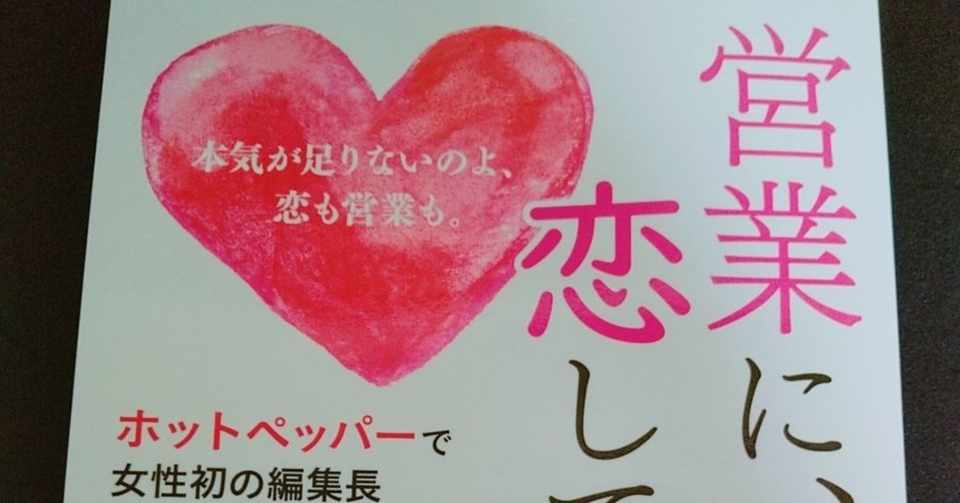 営業に、
恋して
本気が足りないのよ、
恋も営業も。
ホットペッパーで
女性初の編集長